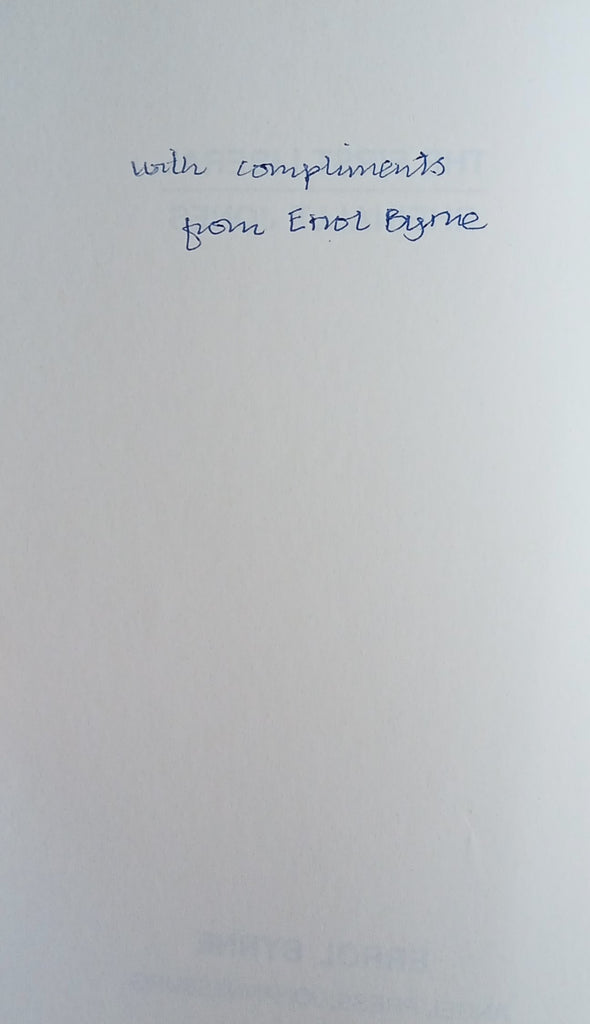 with compliments
from Errol Byrne